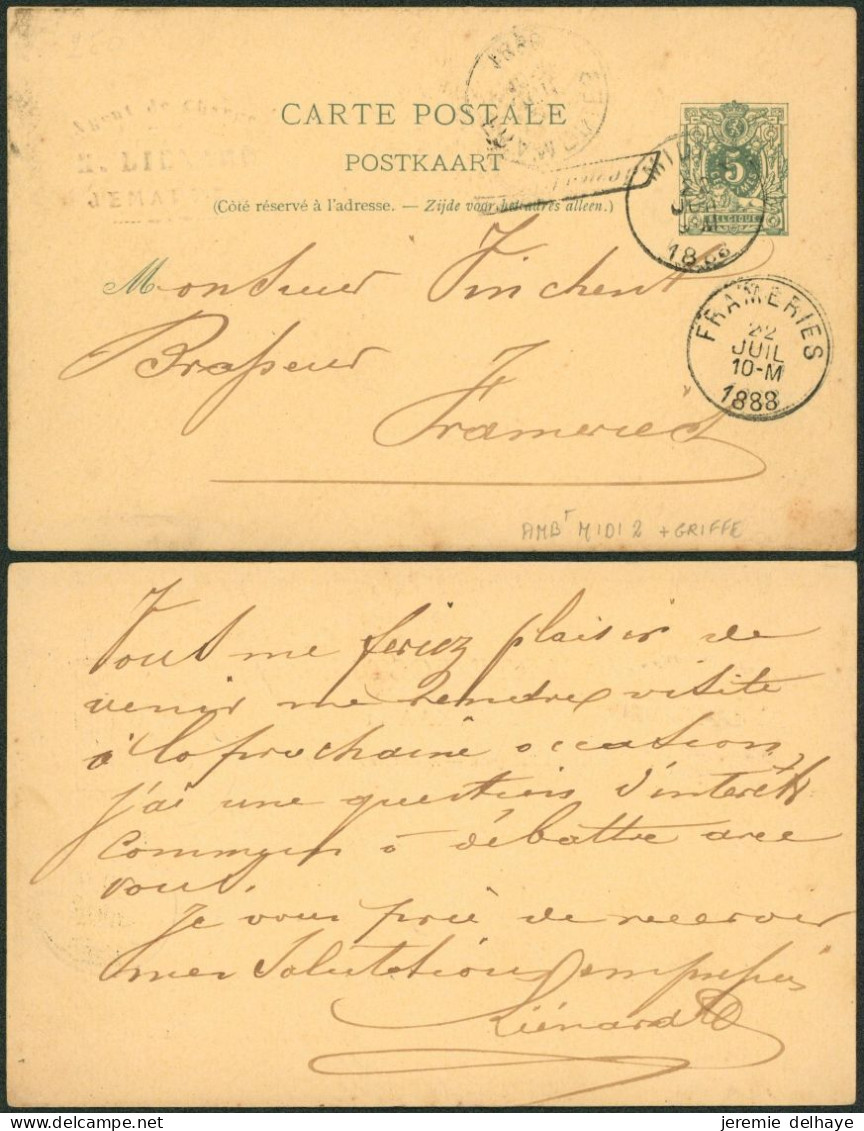 Agent de Change
H. LIENARD
JEMAPPES
CARTE POSTALE
POSTKAART
(Côté réservé à l'adresse. — Zijde voor het adres alleen.)
5
BELGIQUE
MIDI
JUIL
18
FRAMERIES
22
JUIL
10-M
1888
Monsieur Vinchent
Brasseur
Frameries
AMBT MIDI 2 + GRIFFE
Vous me feriez plaisir de
venir me rendre visite
à la prochaine occasion,
j'ai une question d'intérêt
commun à débattre avec
vous.
Je vous prie de recevoir
mes Salutations empressées
Liénard
jeremie delhaye